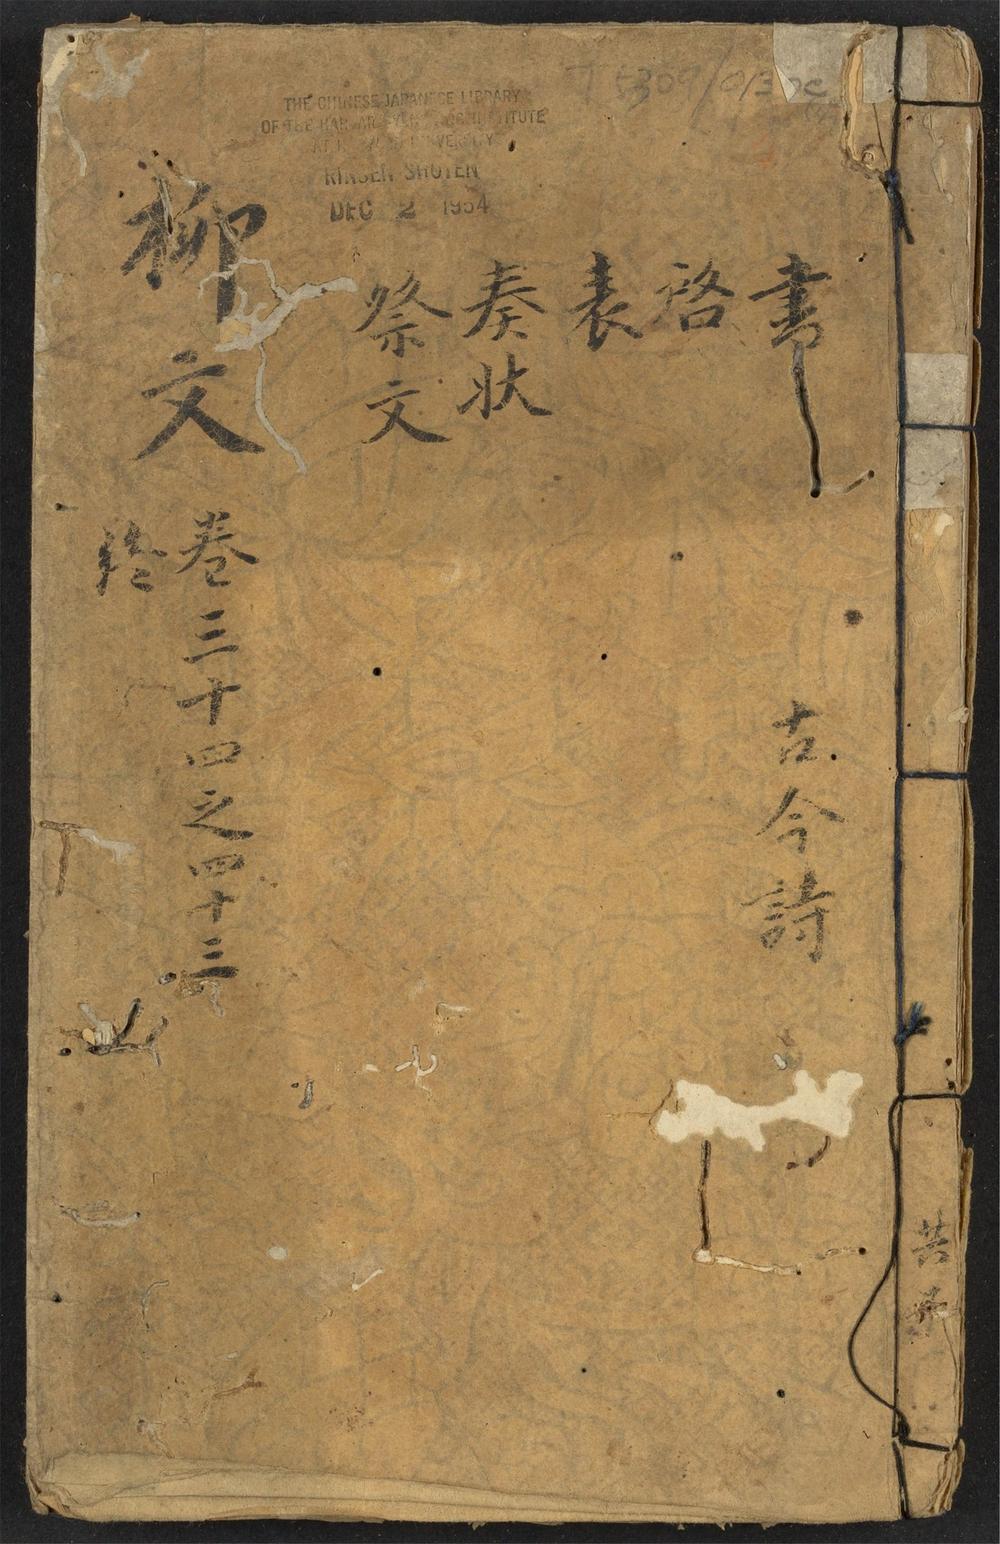 T 5309/0130c
THE CHINESE-JAPANESE LIBRARY
OF THE HARVARD-YENCHING INSTITUTE
AT HARVARD UNIVERSITY
RINSEN SHOTEN
DEC 2 1954
書
啓
表
奏狀
祭文
古今詩
柳文
卷三十四之四十三
終
共